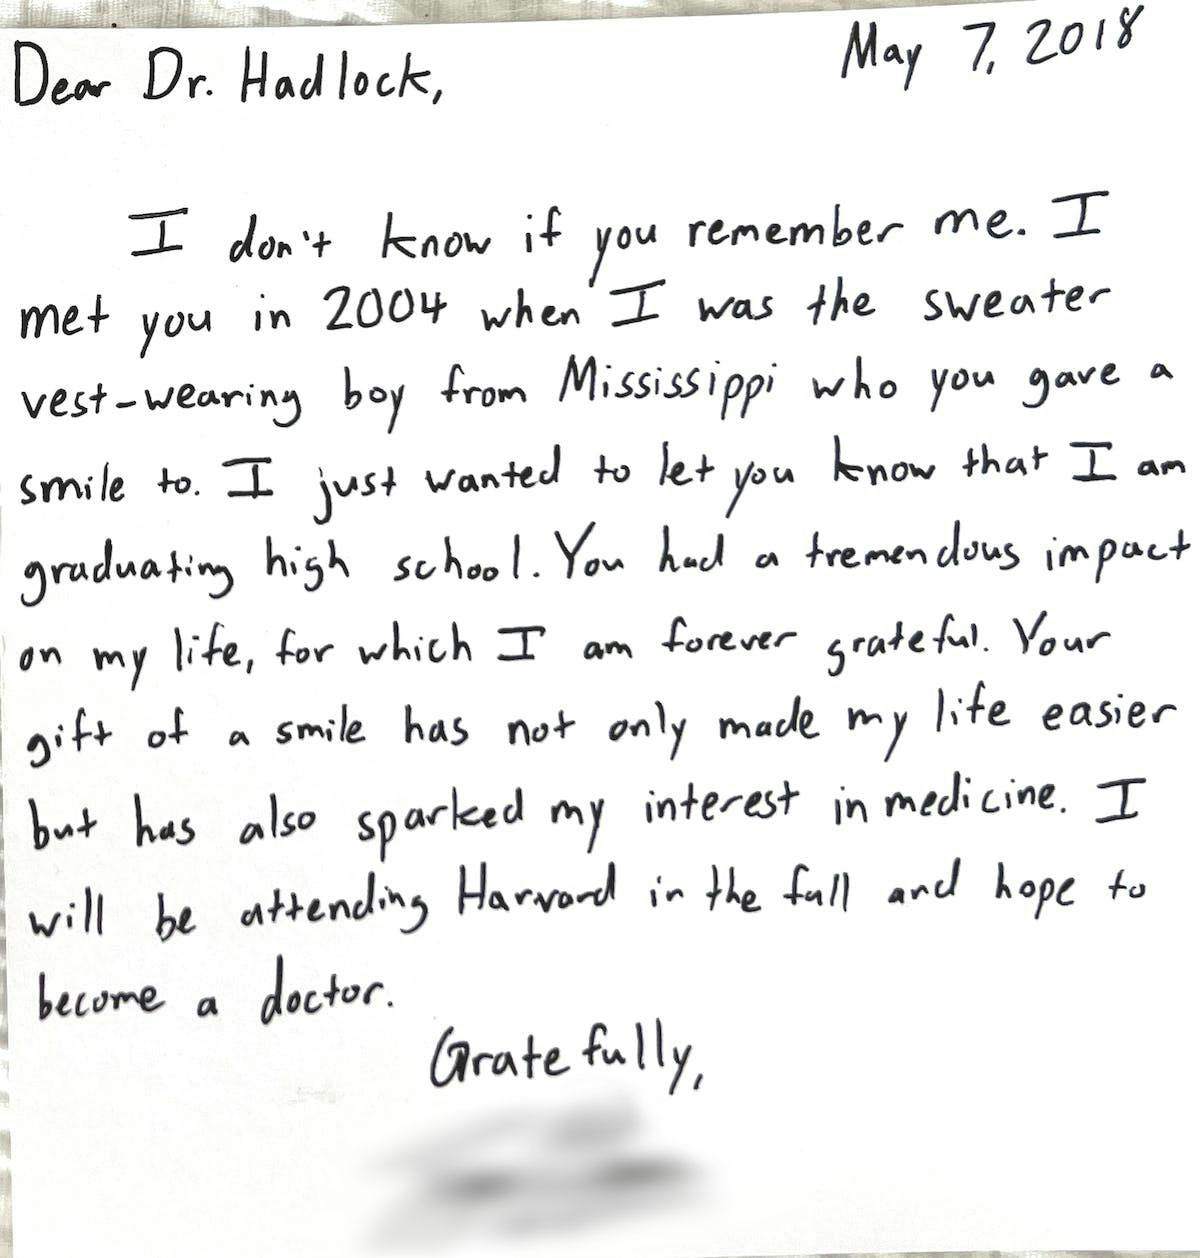 May 7, 2018
Dear Dr. Hadlock,
I don't know if you remember me. I
met you in 2004 when I was the sweater
vest-wearing boy from Mississippi who you gave a
smile to. I just wanted to let you know that I am
graduating high school. You had a tremendous impact
on my life, for which I am forever grateful. Your
gift of a smile has not only made my life easier
but has also sparked my interest in medicine. I
will be attending Harvard in the fall and hope to
become a doctor.
Gratefully,